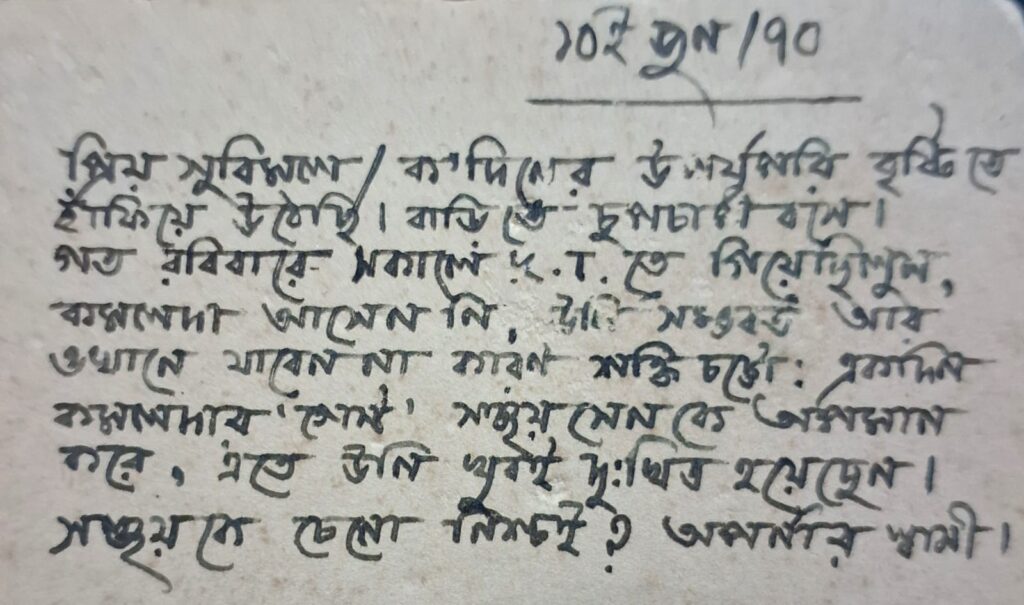 ১০ই জুন /৭০
প্রিয় সুবিমল / ক'দিনের উপর্যুপরি বৃষ্টিতে
হাঁফিয়ে উঠেছি। বাড়িতে চুপচাপ বসে।
গত রবিবারে সকালে তে গিয়েছিলুম,
কমলদা আসেন নি, উনি সম্ভবত আর
ওখানে যাবেন না কারণ শক্তি চট্টো: একদিন
কমলদার 'গেস্ট' সঞ্জয় সেনকে অপমান
করে, এতে উনি খুবই দুঃখিত হয়েছেন।
সঞ্জয়কে চেনো নিশ্চই? অপর্ণার স্বামী।